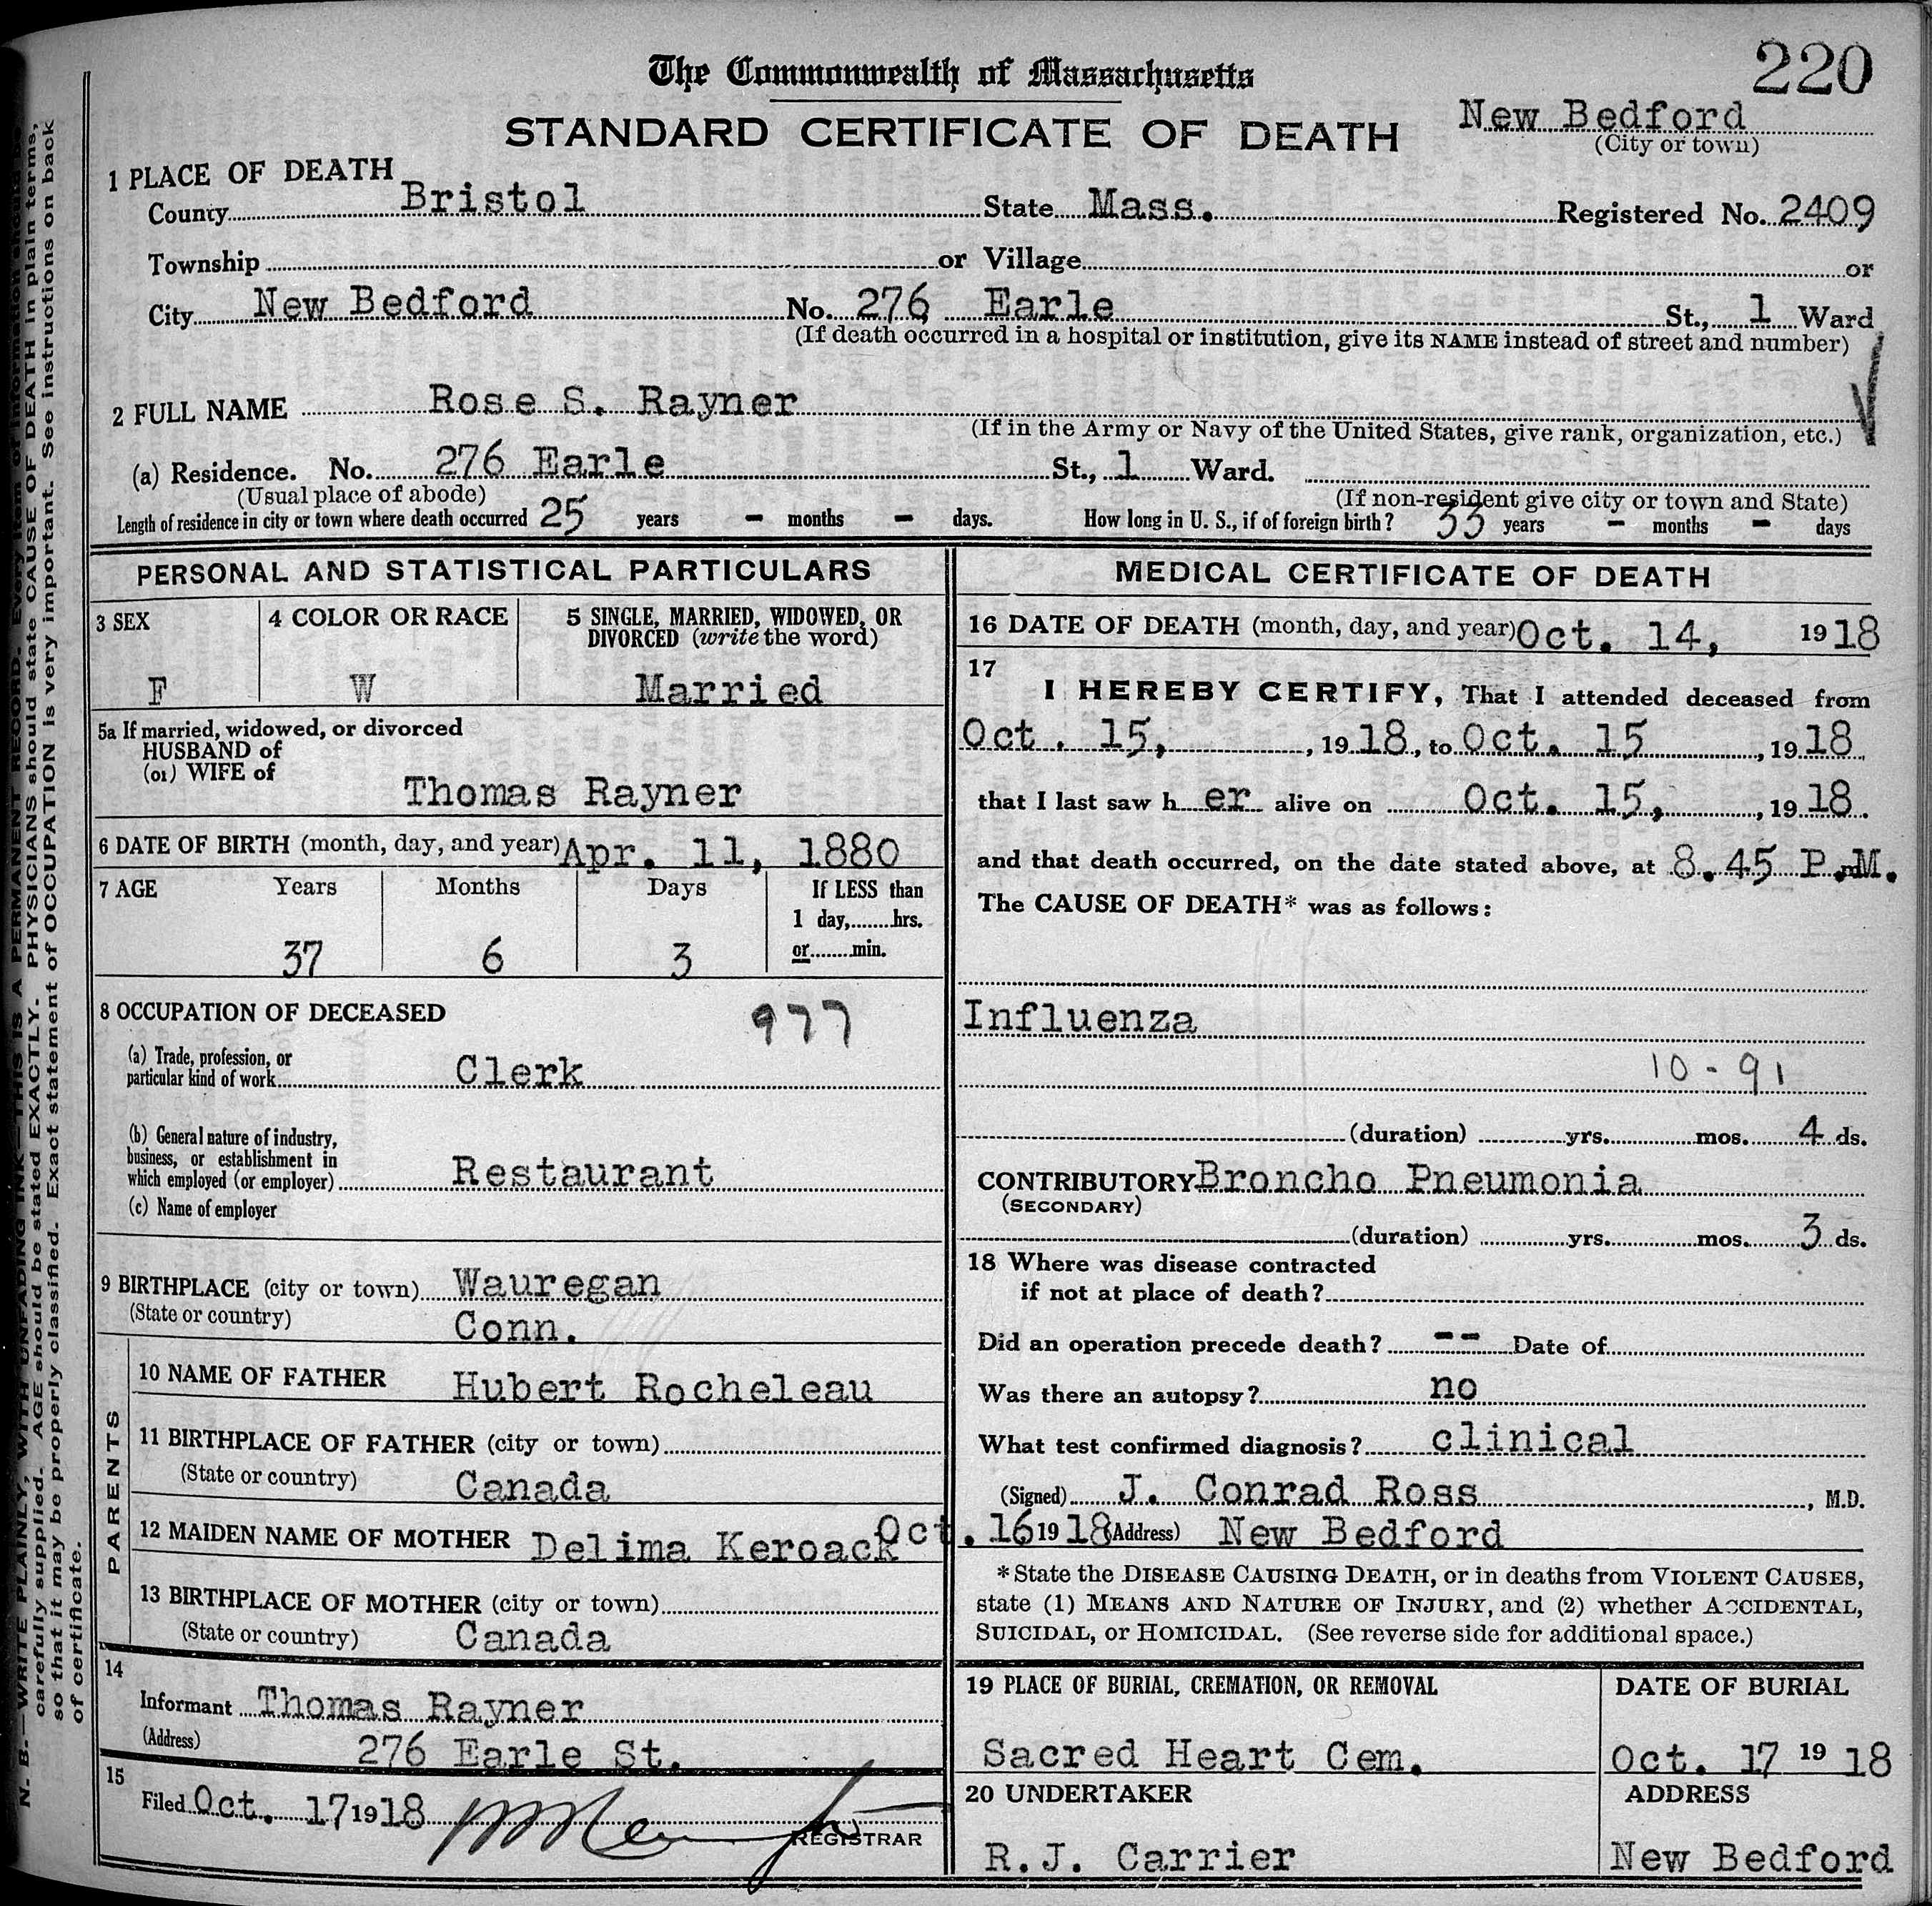 220
The Commonwealth of Massachusetts
STANDARD CERTIFICATE OF DEATH
New Bedford
(City or town)
1 PLACE OF DEATH
County Bristol State Mass. Registered No. 2409
Township or Village or
City New Bedford No. 276 Earle St., 1 Ward
(If death occurred in a hospital or institution, give its NAME instead of street and number)
2 FULL NAME Rose S. Rayner
(If in the Army or Navy of the United States, give rank, organization, etc.)
(a) Residence. No. 276 Earle St., 1 Ward.
(Usual place of abode) (If non-resident give city or town and State)
Length of residence in city or town where death occurred 25 years - months - days. How long in U. S., if of foreign birth? 33 years - months - days
PERSONAL AND STATISTICAL PARTICULARS
3 SEX
F
4 COLOR OR RACE
W
5 SINGLE, MARRIED, WIDOWED, OR
DIVORCED (write the word)
Married
5a If married, widowed, or divorced
HUSBAND of
(or) WIFE of
Thomas Rayner
6 DATE OF BIRTH (month, day, and year) Apr. 11, 1880
7 AGE Years Months Days If LESS than
1 day,........hrs.
37 6 3 or........min.
8 OCCUPATION OF DECEASED 977
(a) Trade, profession, or
particular kind of work Clerk
(b) General nature of industry,
business, or establishment in
which employed (or employer) Restaurant
(c) Name of employer
9 BIRTHPLACE (city or town) Wauregan
(State or country) Conn.
PARENTS
10 NAME OF FATHER Hubert Rocheleau
11 BIRTHPLACE OF FATHER (city or town)
(State or country) Canada
12 MAIDEN NAME OF MOTHER Delima Keroack
13 BIRTHPLACE OF MOTHER (city or town)
(State or country) Canada
14
Informant Thomas Rayner
(Address) 276 Earle St.
15
Filed Oct. 17 1918
REGISTRAR
MEDICAL CERTIFICATE OF DEATH
16 DATE OF DEATH (month, day, and year) Oct. 14, 1918
17
I HEREBY CERTIFY, That I attended deceased from
Oct. 15, , 1918, to Oct. 15 , 1918
that I last saw her alive on Oct. 15, , 1918.
and that death occurred, on the date stated above, at 8.45 P.M.
The CAUSE OF DEATH* was as follows:
Influenza
10-91
(duration) yrs. mos. 4 ds.
CONTRIBUTORY Broncho Pneumonia
(SECONDARY)
(duration) yrs. mos. 3 ds.
18 Where was disease contracted
if not at place of death?
Did an operation precede death? -- Date of
Was there an autopsy? no
What test confirmed diagnosis? clinical
(Signed) J. Conrad Ross , M.D.
Oct. 16 1918 (Address) New Bedford
*State the DISEASE CAUSING DEATH, or in deaths from VIOLENT CAUSES,
state (1) MEANS AND NATURE OF INJURY, and (2) whether ACCIDENTAL,
SUICIDAL, or HOMICIDAL. (See reverse side for additional space.)
19 PLACE OF BURIAL, CREMATION, OR REMOVAL
Sacred Heart Cem.
DATE OF BURIAL
Oct. 17 1918
20 UNDERTAKER
R.J. Carrier
ADDRESS
New Bedford
N. B.—WRITE PLAINLY, WITH UNFADING INK—THIS IS A PERMANENT RECORD. Every item of information should be
carefully supplied. AGE should be stated EXACTLY. PHYSICIANS should state CAUSE OF DEATH in plain terms,
so that it may be properly classified. Exact statement of OCCUPATION is very important. See instructions on back
of certificate.